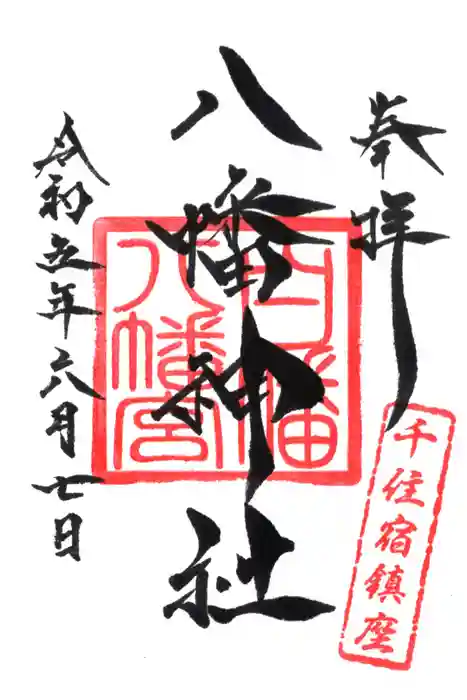 奉拝
千住宿鎮座
八幡神社
八幡宮
令和五年六月七日